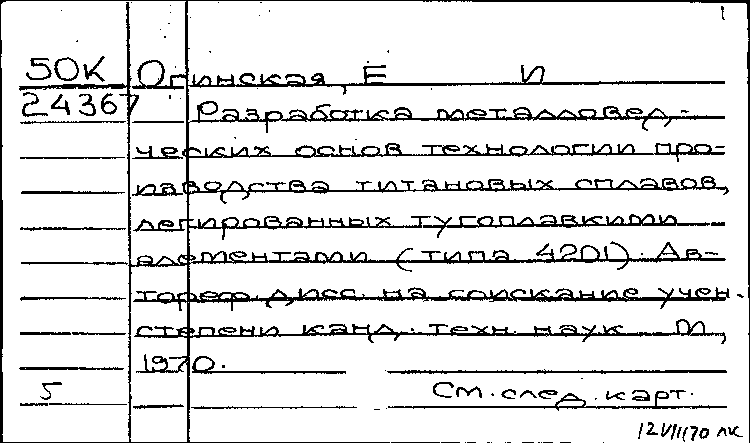 1
50К Огинская, Е И
24367 Разработка металловед,-
ческих основ технологии про-
изводства титановых сплавов,
легированных тугоплавкими
элементами (типа 4201). Ав-
тореф. дисс. на соискание учен.
степени канд. техн. наук М,
1970.
5 См. след. карт.
12VIII70 ЛК